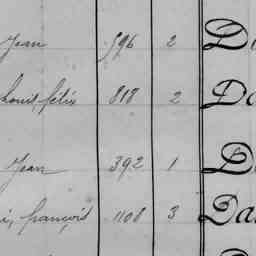 Jean 596 2 D
Louis félix 818 2 Da
Jean 392 1 D
i, françois 1108 3 Dar